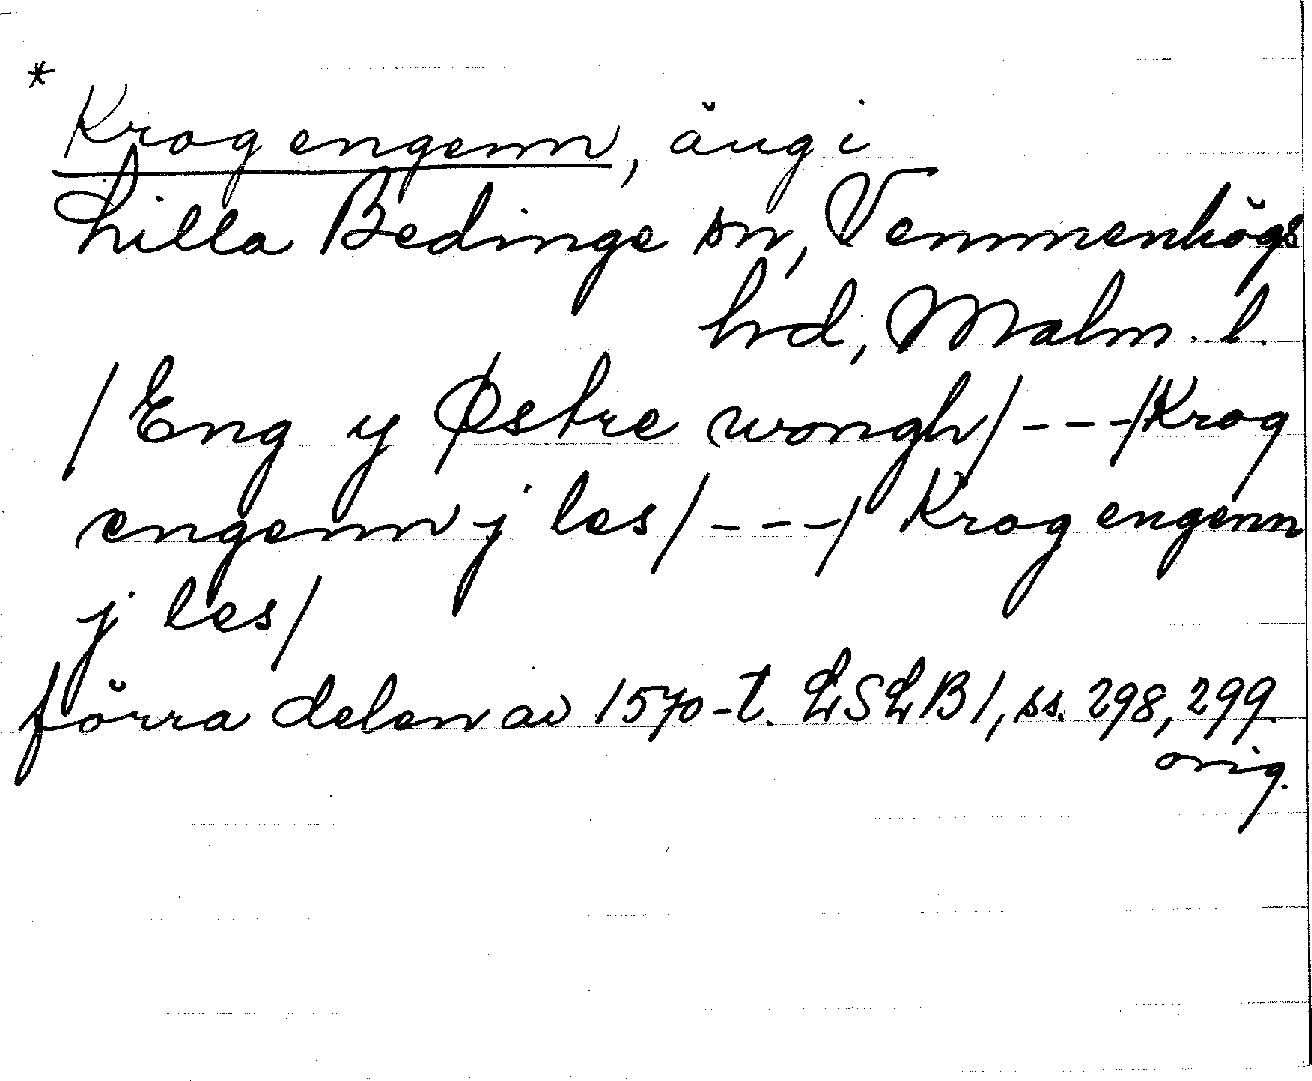 * Krog engenn, äng i
Lilla Bedinge sn, Vemmenhögs
hd, Malm. l.
/Eng y Østre wongh/ - - - /Krog
engenn j les/ - - - / Krog engenn
j les/
förra delen av 1570-t. LSLB1, ss. 298, 299.
orig.